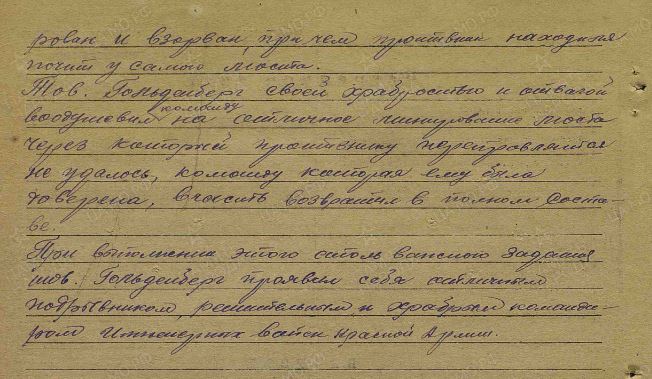 рован и взорван, при чем противник находился
почти у самого моста.
Тов. Гольденберг своей храбростью и отвагой
воодушевил команду на отличное минирование моста
через который противнику переправится
не удалось, команду которая ему была
доверена, в часть возвратил в полном соста-
ве.
При выполнении этого столь важного задания
тов. Гольденберг проявил себя отличным
подрывником, решительным и храбрым команди-
ром Инженерных войск Красной Армии.